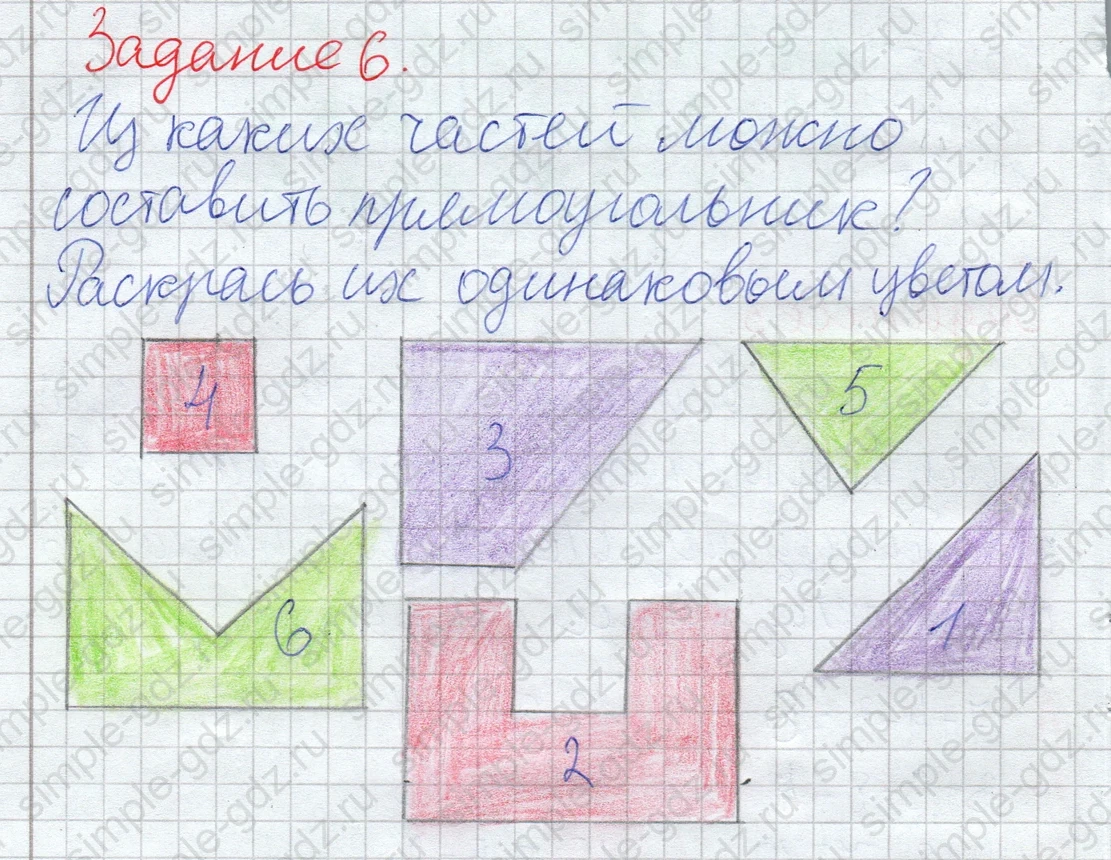 Задание 6.
Из каких частей можно
составить прямоугольник?
Раскрась их одинаковым цветом.
4
3
5
6
2
1
simple-gdz.ru